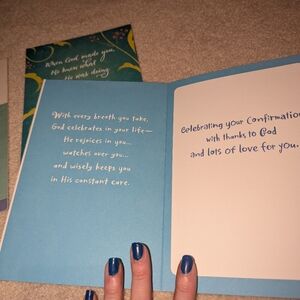 When God made you,
He knew what
He was doing
With every breath you take,
God celebrates in your life—
He rejoices in you...
watches over you...
and wisely keeps you
in His constant care.
Celebrating your Confirmation
with thanks to God
and lots of love for you.